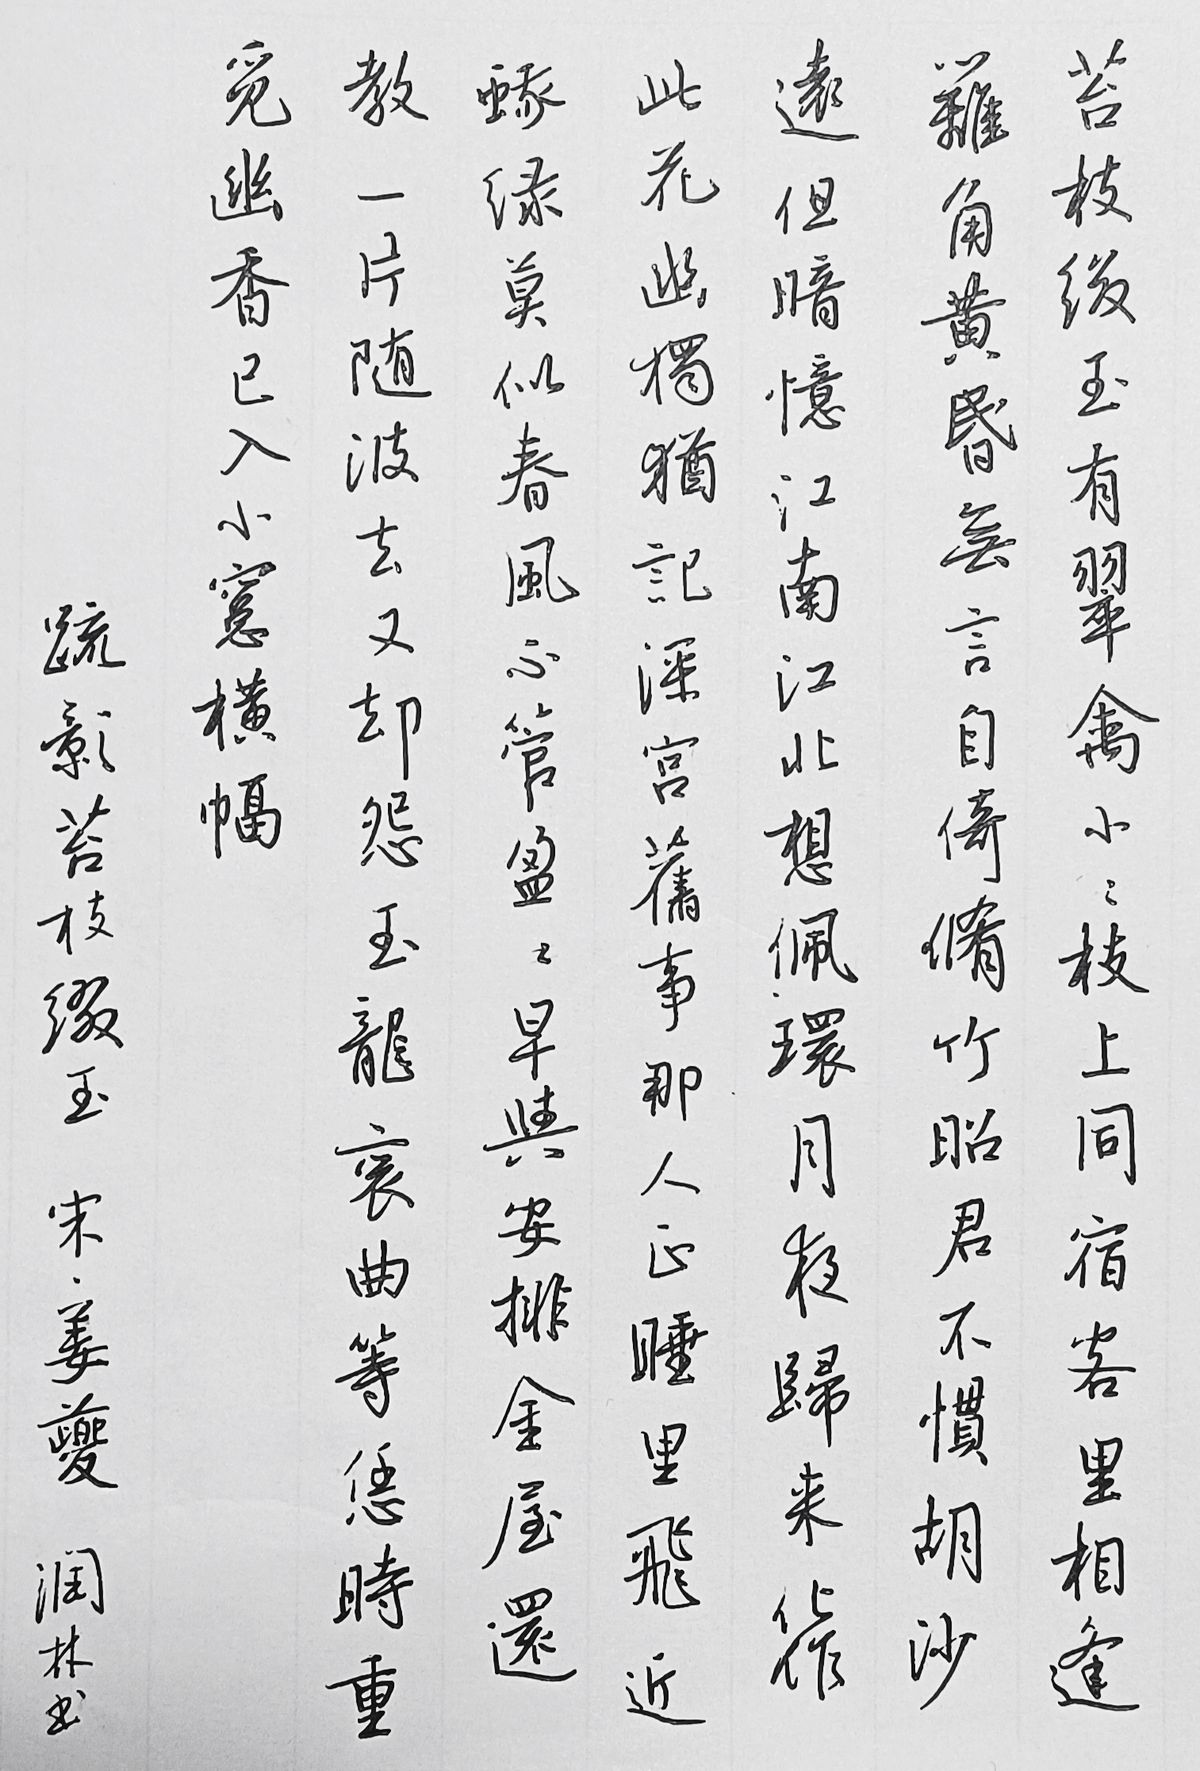 苔枝缀玉有翠禽小〻枝上同宿客里相逢
籬角黄昏無言自倚脩竹昭君不慣胡沙
遠但暗憶江南江北想佩環月夜歸来化作
此花幽獨猶記深宮舊事那人正睡里飛近
蛾绿莫似春風不管盈〻早與安排金屋還
教一片随波去又却怨玉龍哀曲等恁時重
覓幽香已入小窻橫幅
疏影苔枝缀玉 宋·姜夔 润林书